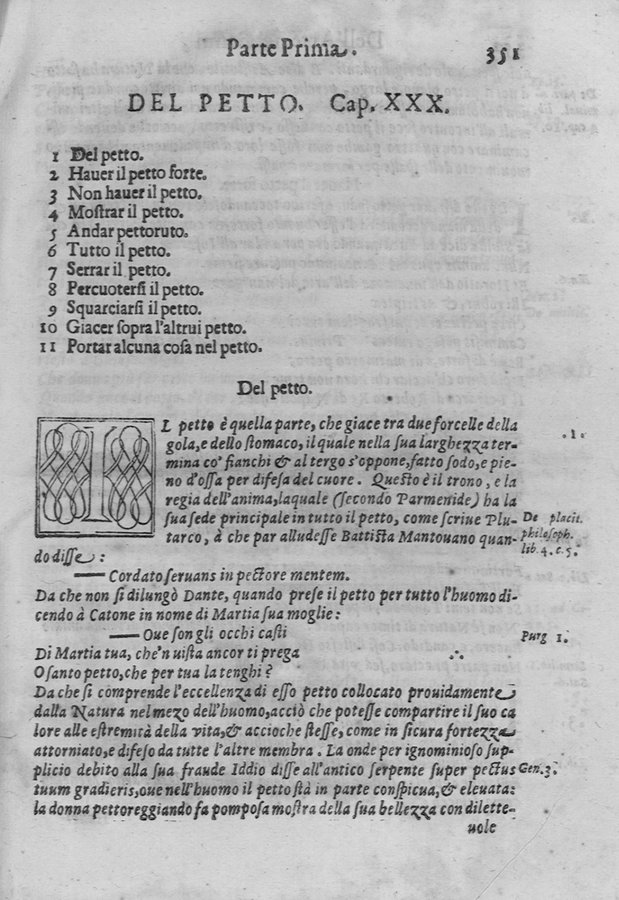 Parte Prima. 351
DEL PETTO. Cap. XXX.
1 Del petto.
2 Hauer il petto forte.
3 Non hauer il petto.
4 Moſtrar il petto.
5 Andar pettoruto.
6 Tutto il petto.
7 Serrar il petto.
8 Percuoterſi il petto.
9 Squarciarſi il petto.
10 Giacer ſopra l'altrui petto.
11 Portar alcuna coſa nel petto.
Del petto.
IL petto è quella parte, che giace tra due forcelle della
gola, e dello ſtomaco, il quale nella ſua larghezza ter-
mina co' fianchi & al tergo s'oppone, fatto ſodo, e pie-
no d'oſſa per difeſa del cuore. Queſto è il trono, e la
regia dell'anima, laquale (ſecondo Parmenide) ha la
ſua ſede principale in tutto il petto, come ſcriue Plu-
tarco, à che par alludeſſe Battiſta Mantouano quan-
do diſſe:
.1.
De placit.
philoſoph.
lib. 4. c. 5.
—— Cordato ſeruans in pectore mentem.
Da che non ſi dilungò Dante, quando preſe il petto per tutto l'huomo di-
cendo à Catone in nome di Martia ſua moglie:
—— Oue ſon gli occhi caſti
Purg 1.
Di Martia tua, che'n uiſta ancor ti prega
O ſanto petto, che per tua la tenghi?
Da che ſi comprende l'eccellenza di eſſo petto collocato prouidamente
dalla Natura nel mezo dell'huomo, acciò che poteſſe compartire il ſuo ca
lore alle eſtremità della vita, & accioche ſteſſe, come in ſicura fortezza
attorniato, e difeſo da tutte l'altre membra. La onde per ignominioſo ſup-
plicio debito alla ſua fraude Iddio diſſe all'antico ſerpente super pectus
Gen. 3.
tuum gradieris, oue nell'huomo il petto ſtà in parte conſpicua, & eleuata:
la donna pettoreggiando fa pompoſa moſtra della ſua bellezza con dilette-
uole